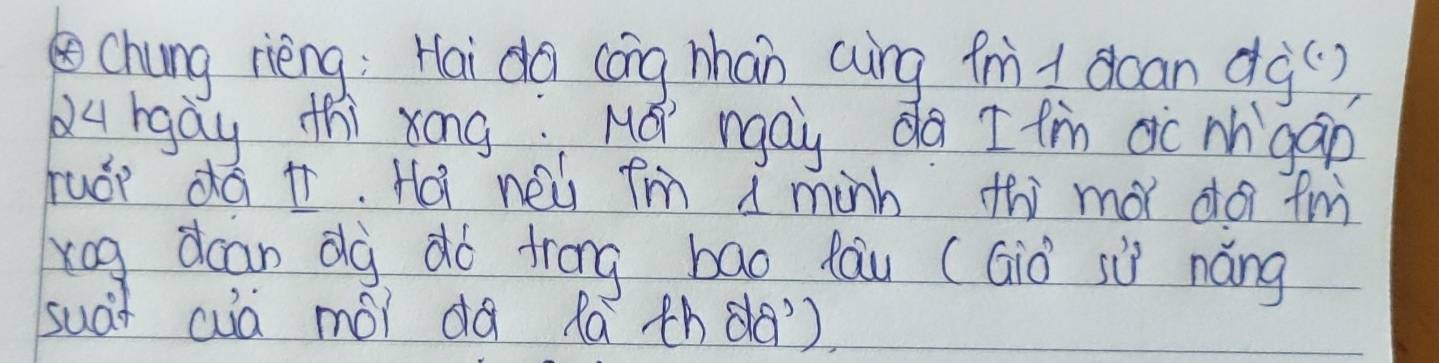 ⊛ Chung riêng: Hai đội công nhân cùng làm 1 đoạn đg (.)
24 ngày thì xong. Mỗi ngày đội I làm đc nh' gấp
rưỡi đội II. Hỏi nếu làm 1 mình thì mỗi đội làm
xog đoạn đg đó trong bao lâu (Giả sử năng
suất của mỗi đội là th đổi)